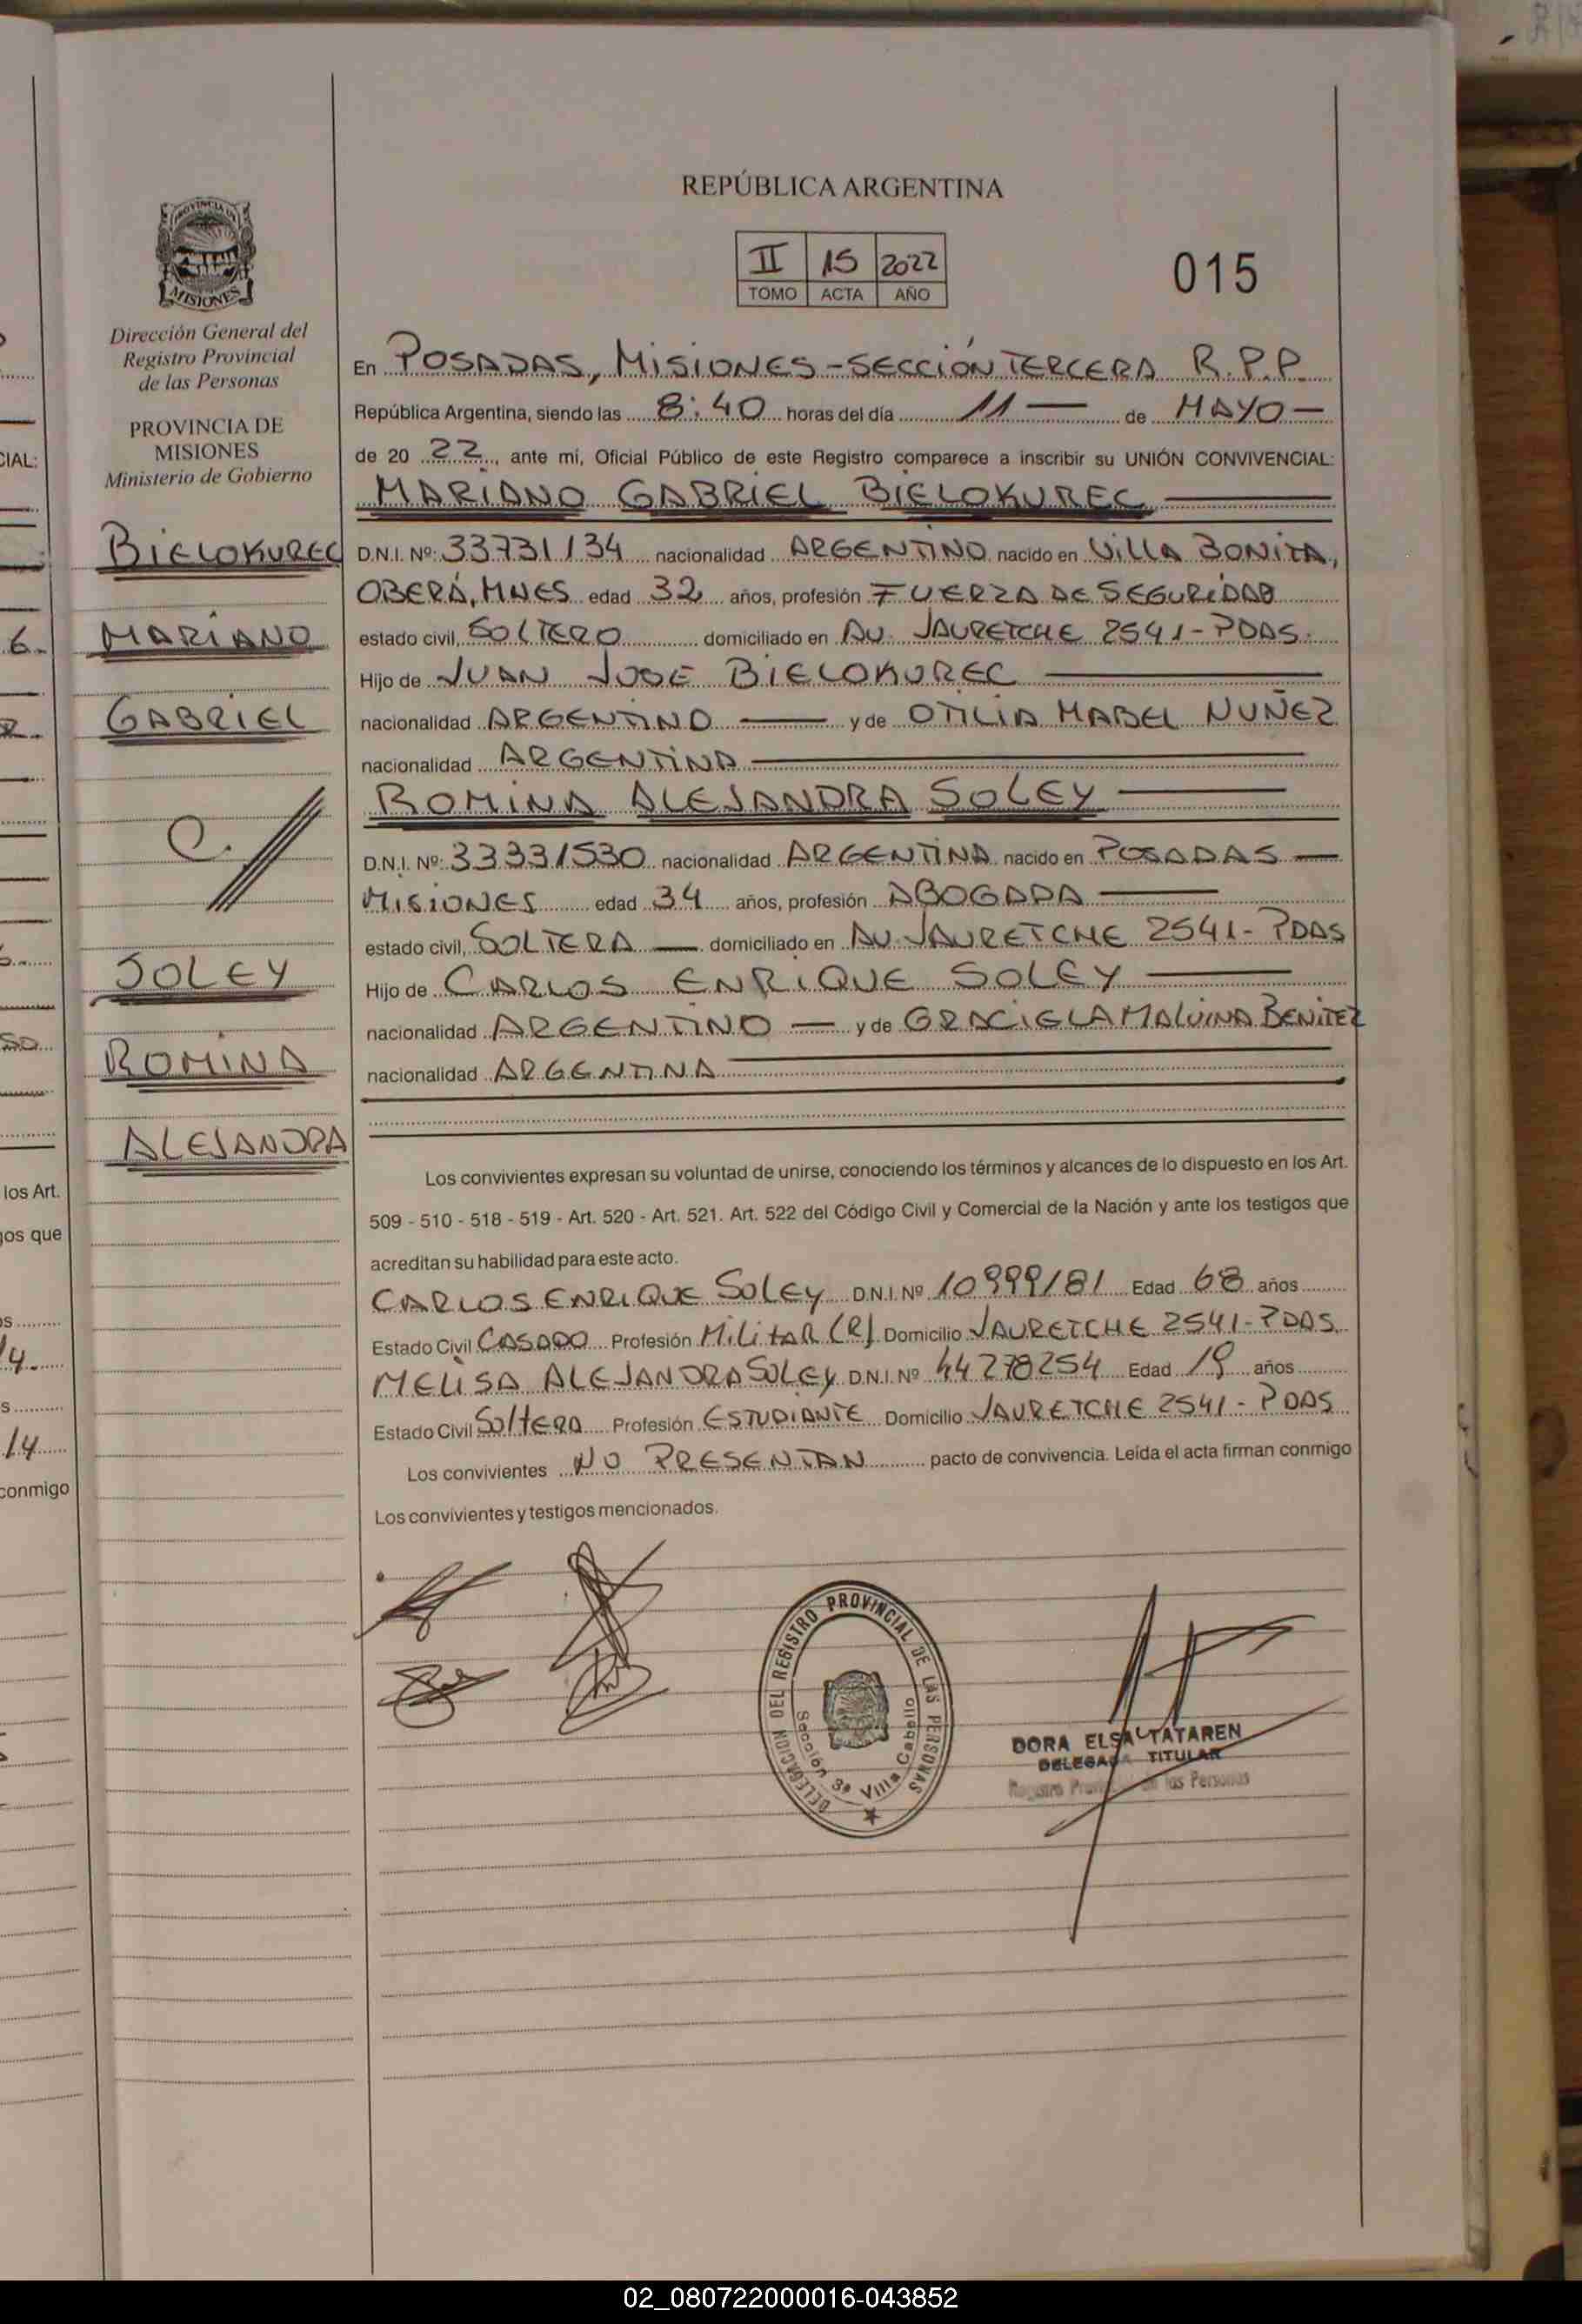 REPÚBLICA ARGENTINA
II 15 2022
TOMO ACTA AÑO
015
PROVINCIA DE
MISIONES
Dirección General del
Registro Provincial
de las Personas
PROVINCIA DE
MISIONES
Ministerio de Gobierno
BIELOKUREC
MARIANO
GABRIEL
C.//
SOLEY
ROMINA
ALEJANDRA
En POSADAS, MISIONES - SECCIÓN TERCERA R.P.P.
República Argentina, siendo las 8:40 horas del día 11 — de MAYO —
de 20 22, ante mí, Oficial Público de este Registro comparece a inscribir su UNIÓN CONVIVENCIAL:
MARIANO GABRIEL BIELOKUREC
D.N.I. Nº: 33731134 nacionalidad ARGENTINO nacido en VILLA BONITA,
OBERÁ, MNES edad 32 años, profesión FUERZA DE SEGURIDAD
estado civil, SOLTERO domiciliado en AV. JAURETCHE 2541 - PDAS.
Hijo de JUAN JOSE BIELOKUREC
nacionalidad ARGENTINO — y de OTILIA MABEL NUÑEZ
nacionalidad ARGENTINA
ROMINA ALEJANDRA SOLEY
D.N.I. Nº: 33331530 nacionalidad ARGENTINA nacido en POSADAS —
MISIONES edad 34 años, profesión ABOGADA
estado civil, SOLTERA — domiciliado en AV. JAURETCHE 2541 - PDAS
Hijo de CARLOS ENRIQUE SOLEY
nacionalidad ARGENTINO — y de GRACIELA MALVINA BENITEZ
nacionalidad ARGENTINA
Los convivientes expresan su voluntad de unirse, conociendo los términos y alcances de lo dispuesto en los Art.
509 - 510 - 518 - 519 - Art. 520 - Art. 521. Art. 522 del Código Civil y Comercial de la Nación y ante los testigos que
acreditan su habilidad para este acto.
CARLOS ENRIQUE SOLEY D.N.I. Nº 10999181 Edad 68 años
Estado Civil CASADO Profesión MILITAR (R) Domicilio JAURETCHE 2541 - PDAS.
MELISA ALEJANDRA SOLEY D.N.I. Nº 44278254 Edad 19 años
Estado Civil SOLTERA Profesión ESTUDIANTE Domicilio JAURETCHE 2541 - PDAS
Los convivientes NO PRESENTAN pacto de convivencia. Leída el acta firman conmigo
Los convivientes y testigos mencionados.
DELEGACION DEL REGISTRO PROVINCIAL DE LAS PERSONAS
Sección 3ª Villa Cabello
DORA ELSA TATAREN
DELEGADA TITULAR
Registro Provincial de las Personas
CIAL:
6.
los Art.
gos que
14
14
conmigo
02_080722000016-043852